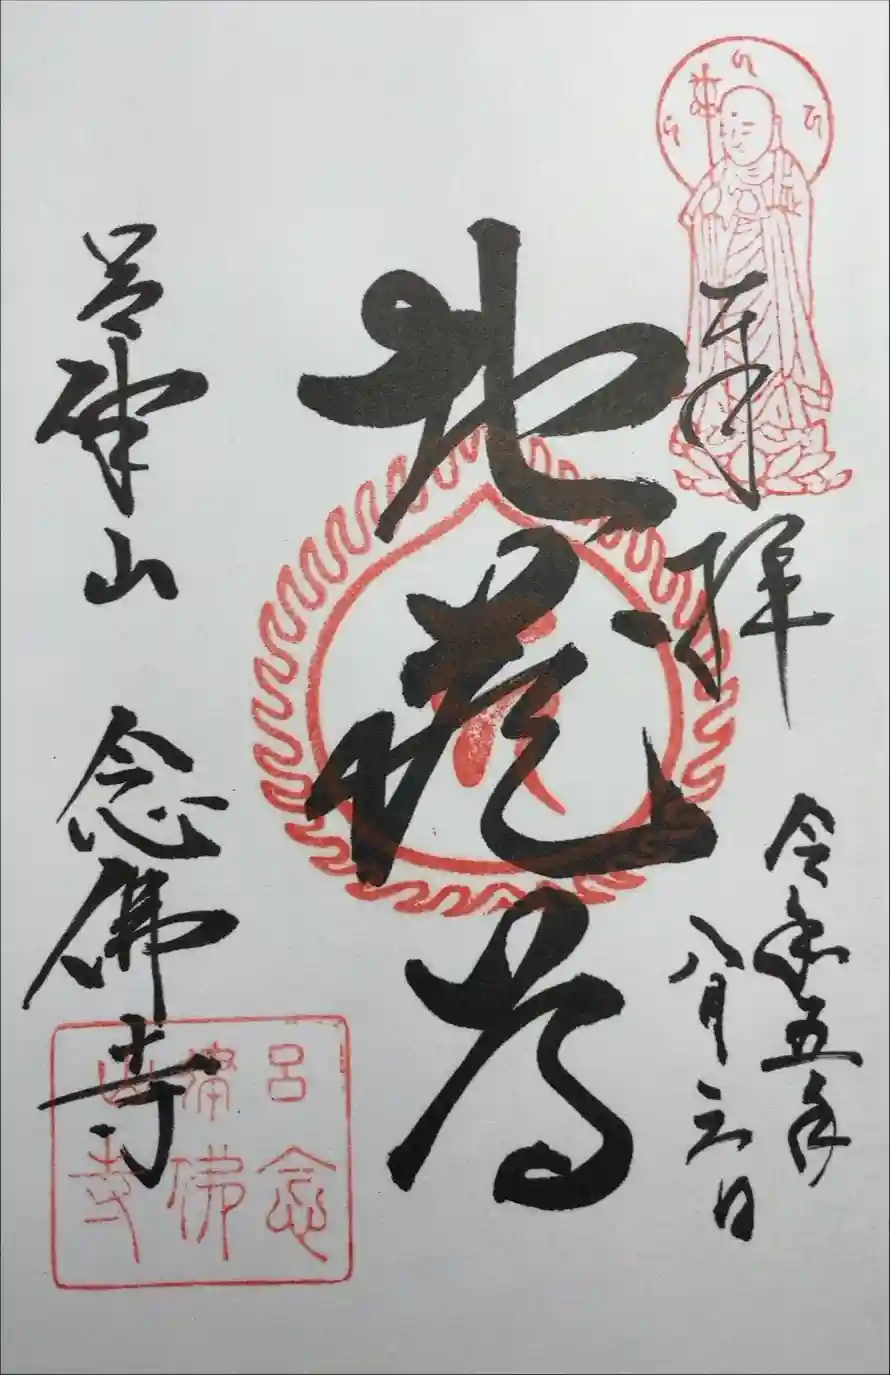 奉拝
令和五年
八月三日
地蔵尊
山 念佛寺
呂念
佛
山寺